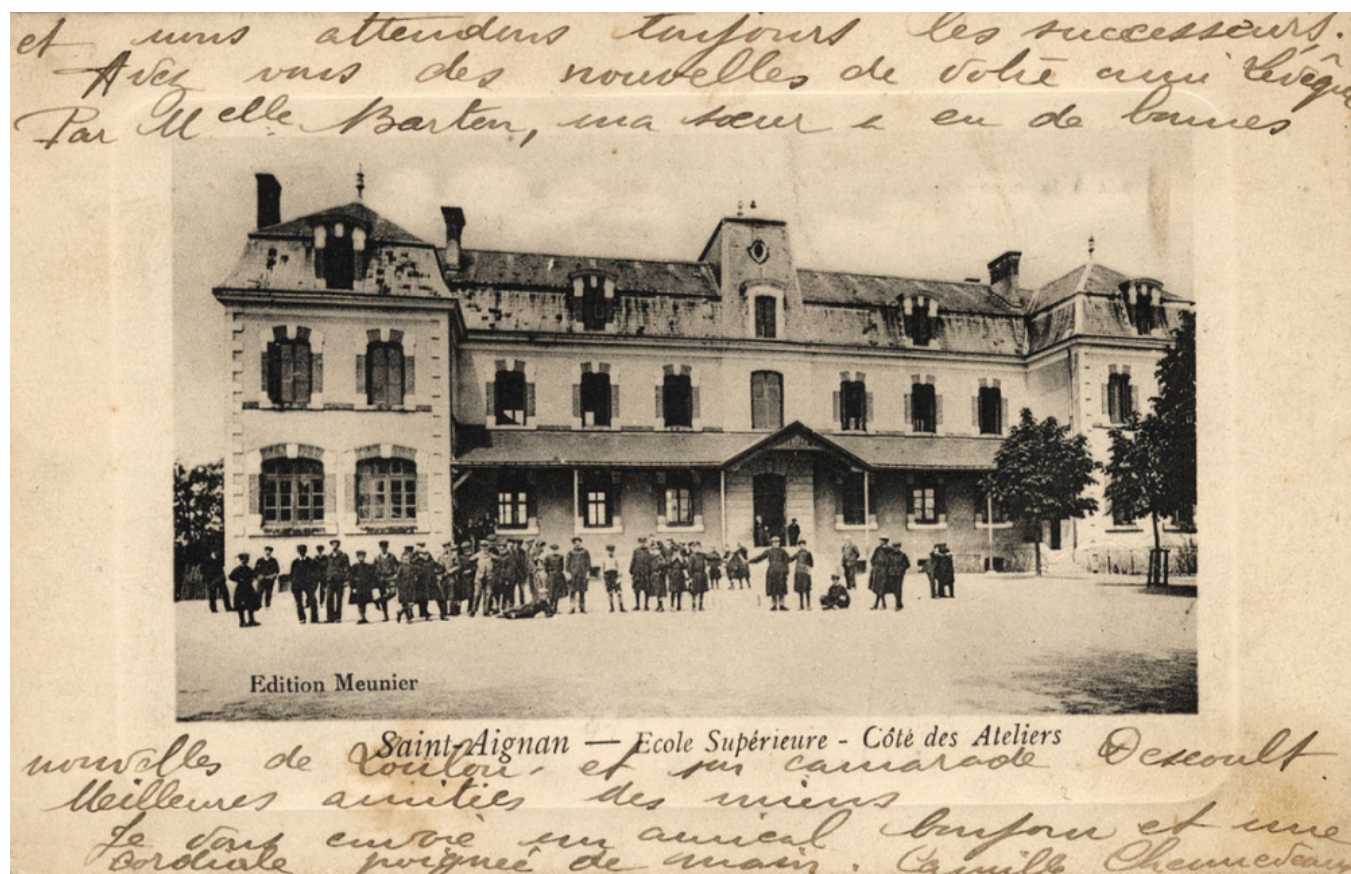 et nous attendons toujours les successeurs.
Avez vous des nouvelles de votre ami Lévêque
Par Melle Barton, ma sœur a eu de bonnes
Edition Meunier
Saint-Aignan — Ecole Supérieure - Côté des Ateliers
nouvelles de Loulou. et son camarade
Meilleures amitiés des miens
Je vous envoie un amical bonjour et une
cordiale poignée de main. Camille